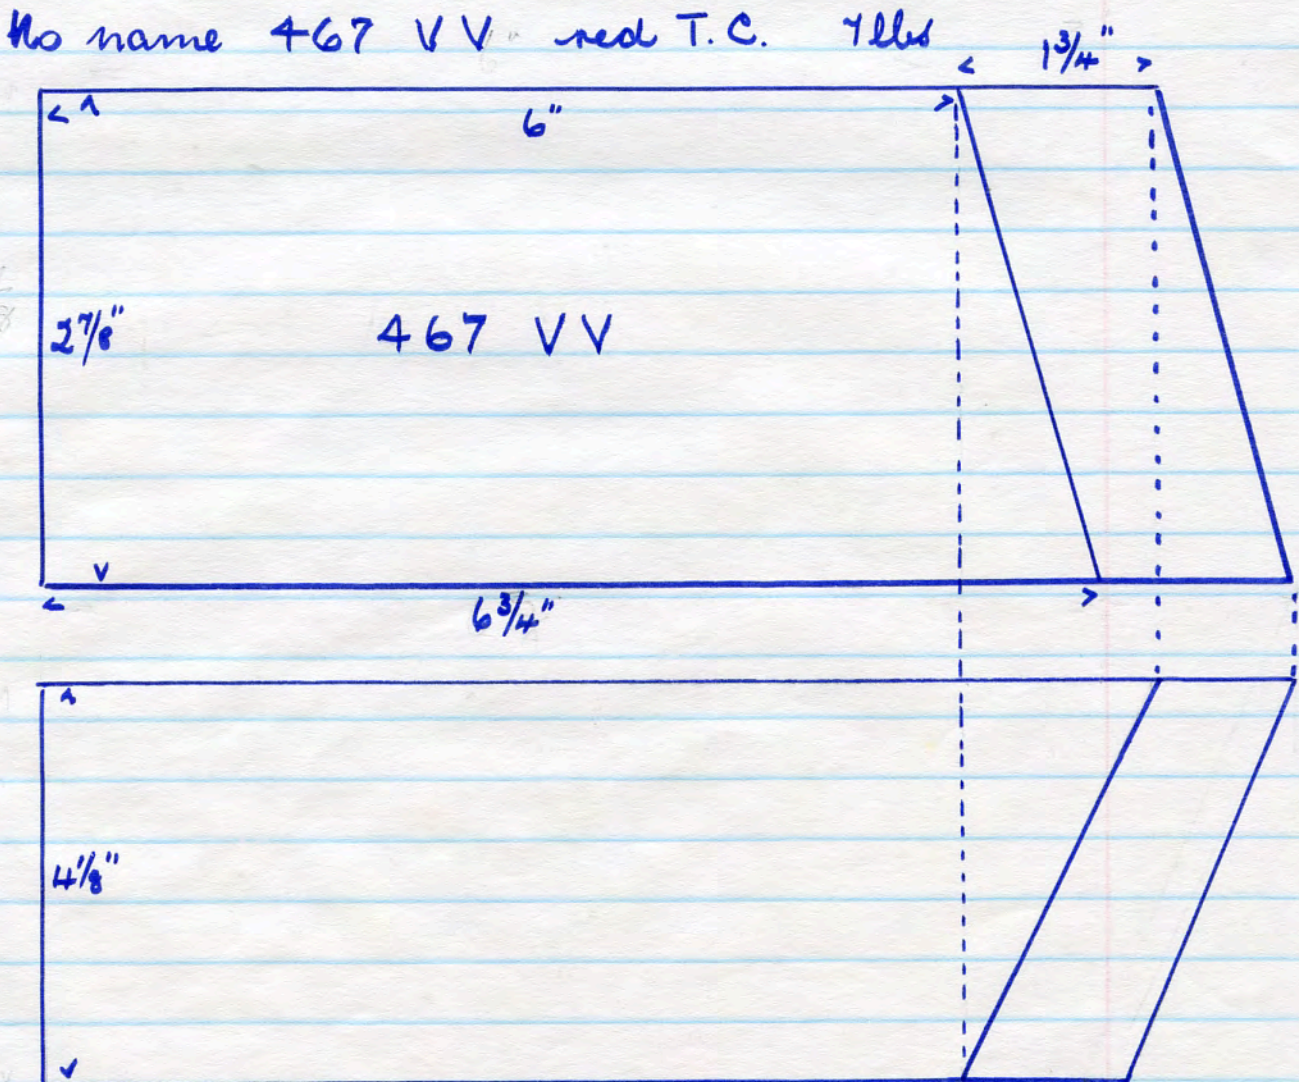 No name 467 VV red T.C. 7 lbs
1 3/4"
6"
2 7/8"
467 VV
6 3/4"
4 1/8"